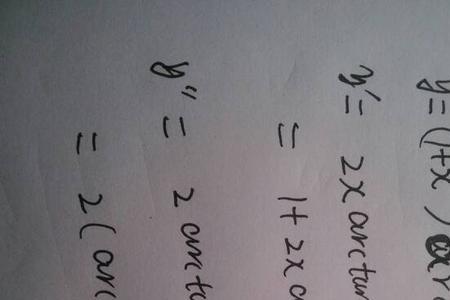 y=(1+x
y'= 2x arctan
= 1+2x a
y"= 2 arcta
= 2(arc